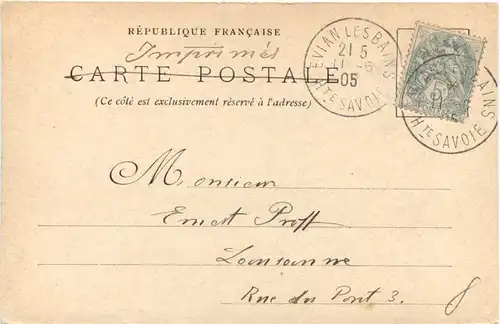 RÉPUBLIQUE FRANÇAISE
Imprimés
CARTE POSTALE
(Ce côté est exclusivement réservé à l'adresse)
EVIAN LES BAINS
21 5
05
Hte SAVOIE
BAINS
5
Hte SAVOIE
Monsieur
Ernest
Lausanne
Rue du Pont 3.